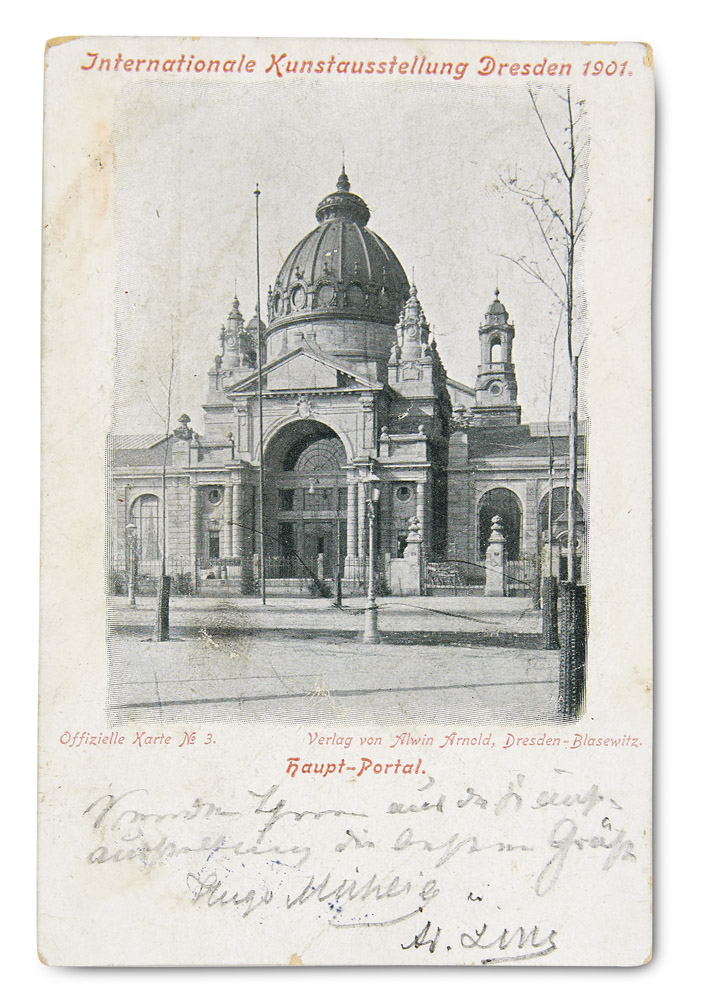 Internationale Kunstausstellung Dresden 1901.
Offizielle Karte № 3.
Verlag von Alwin Arnold, Dresden-Blasewitz.
Haupt-Portal.
aus der
die besten Grüße
Hugo Mühlig u